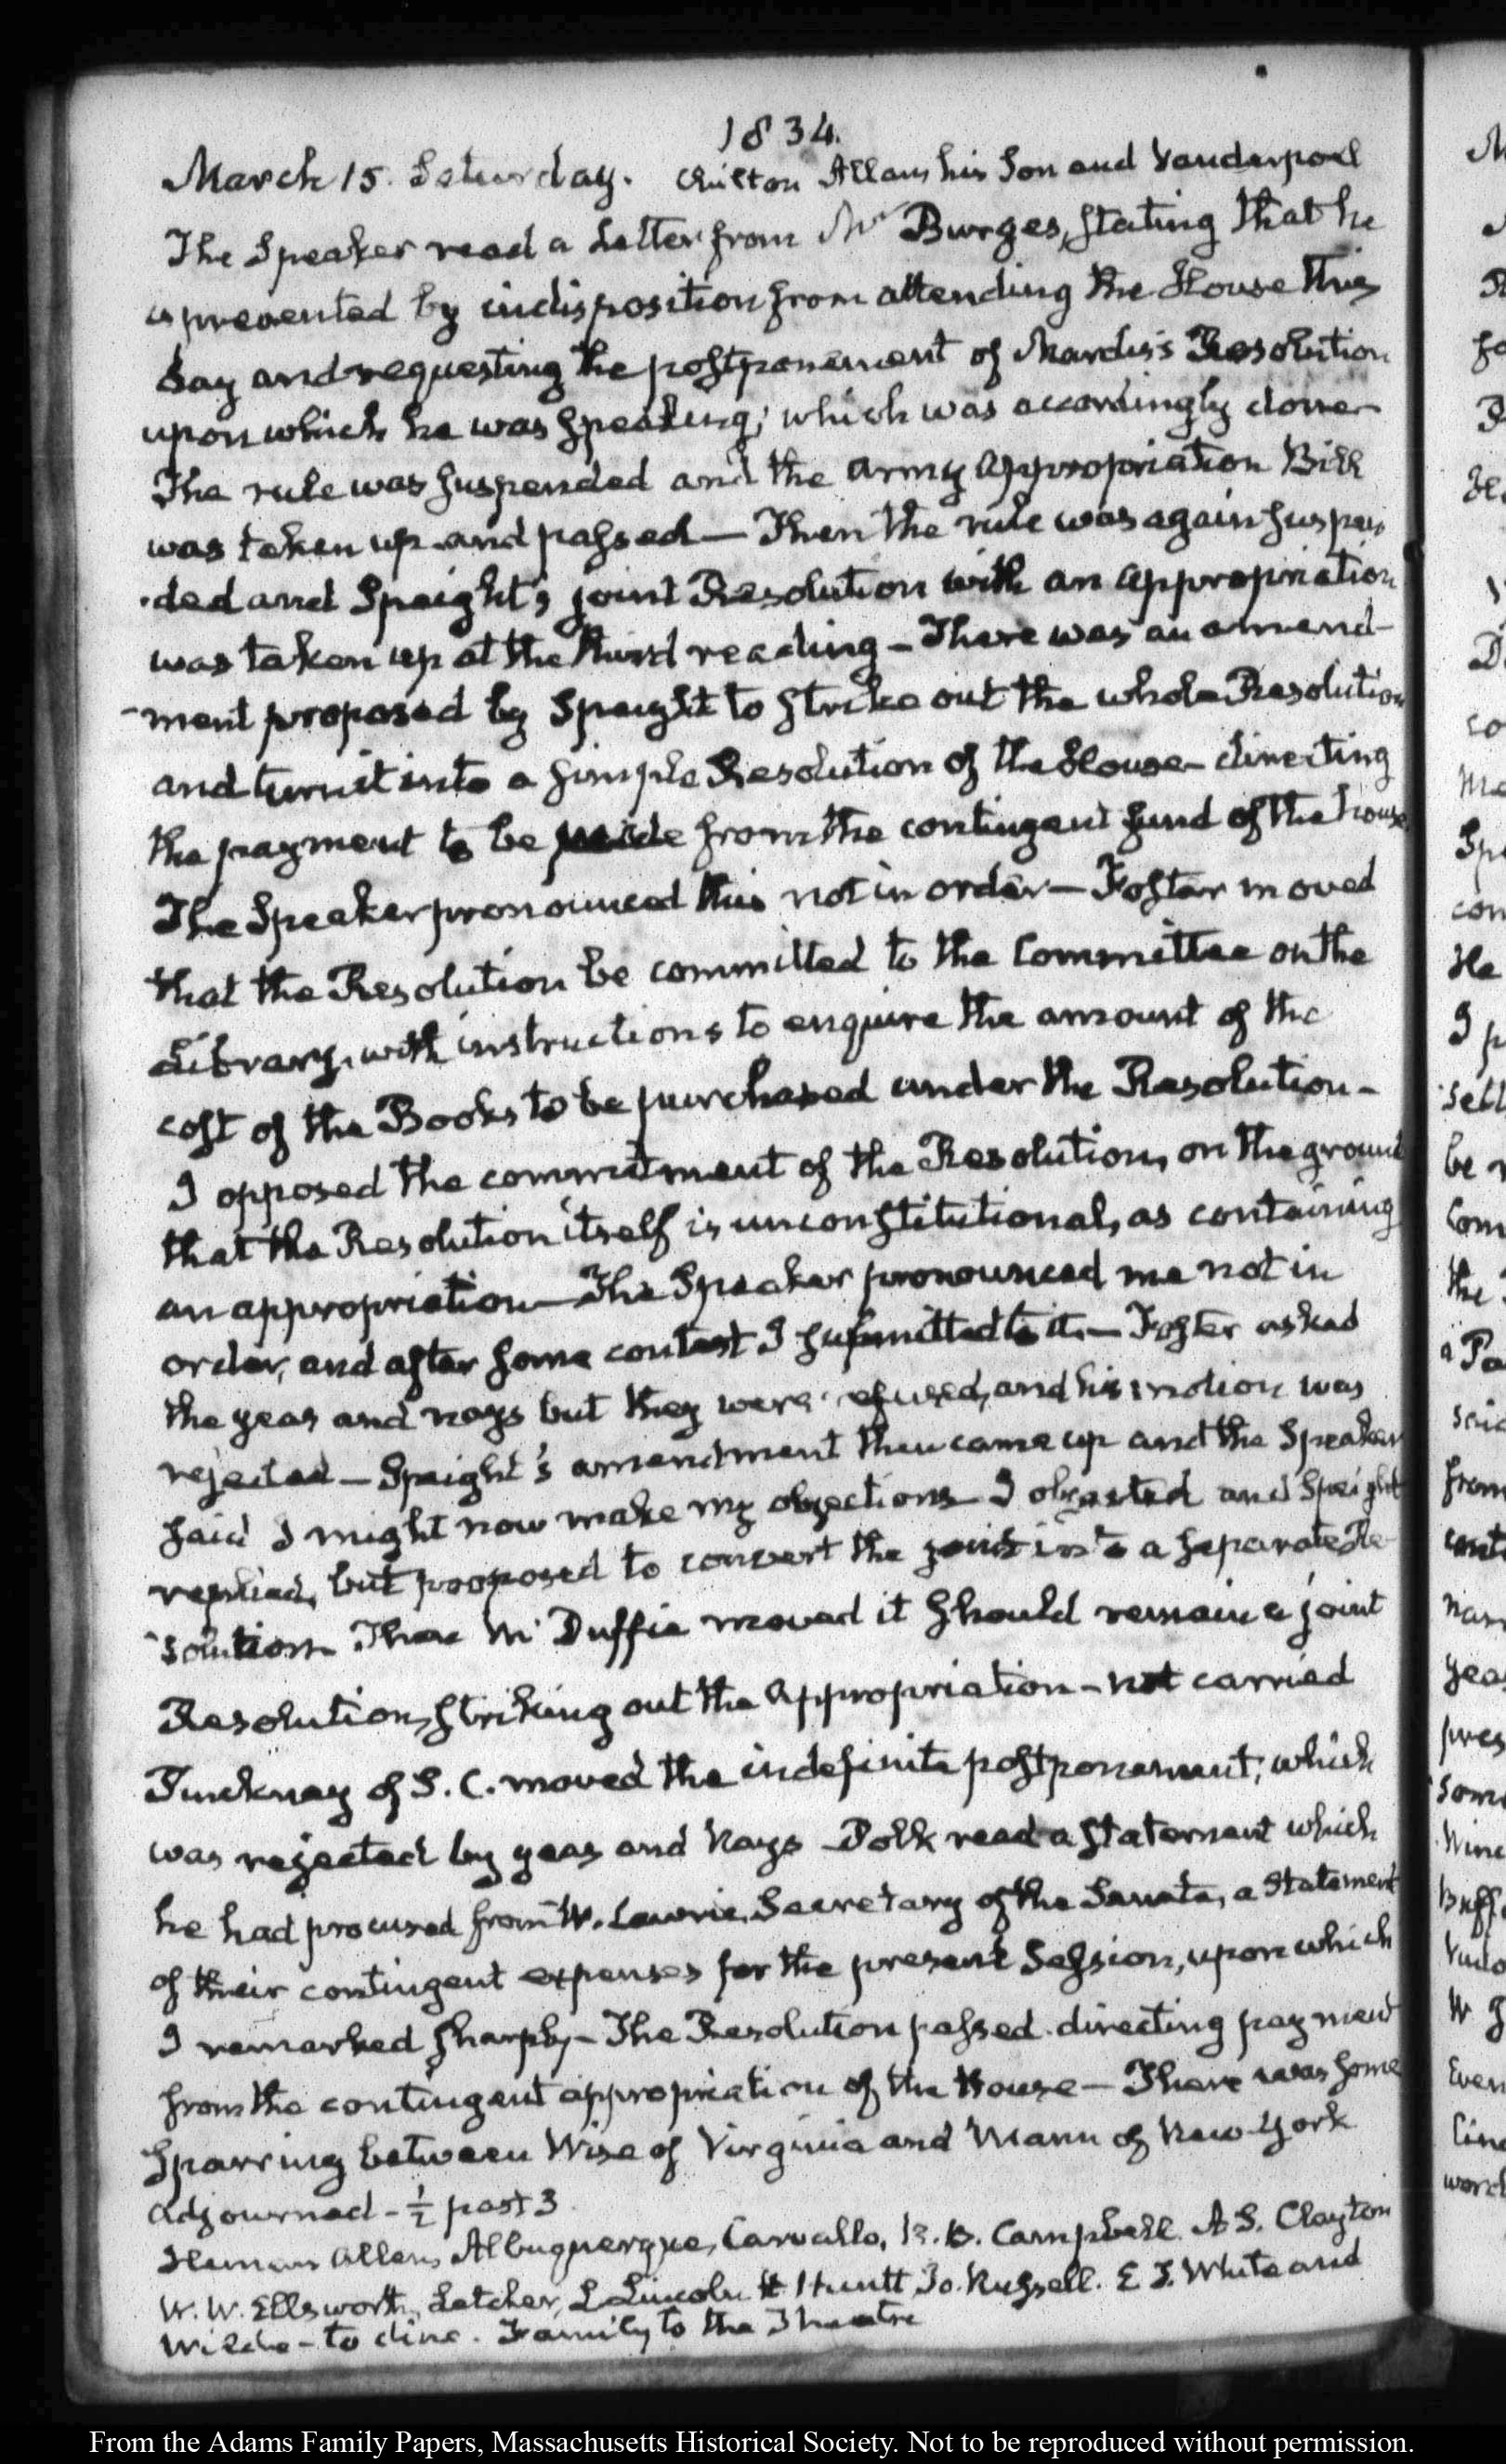 1834.
March 15. Saturday. Chilton Allan, his Son and Vanderpoel
The Speaker read a Letter from Mr Burges, stating that he
is prevented by indisposition from attending the House this
day and requesting the postponement of Mardis's Resolution
upon which he was speaking; which was accordingly done
The rule was suspended and the Army appropriation Bill
was taken up and passed — Then the rule was again suspen
-ded and Speight's joint Resolution with an appropriation
was taken up at the third reading — There was an amend-
-ment proposed by Speight to strike out the whole Resolution
and turn it into a simple Resolution of the House directing
the payment to be made from the contingent fund of the house
The Speaker pronounced this not in order — Foster moved
that the Resolution be committed to the Committee on the
Library, with instructions to enquire the amount of the
cost of the Books to be purchased under the Resolution —
I opposed the commitment of the Resolution, on the ground
that the Resolution itself is unconstitutional, as containing
an appropriation — The Speaker pronounced me not in
order, and after some contest I submitted to it. — Foster asked
the yeas and nays but they were refused, and his motion was
rejected — Speight's amendment then came up and the Speaker
said I might now make my objections — I objected and Speight
replied, but proposed to convert the joint into a separate Re-
-solution. Then Mc Duffie moved it should remain a joint
Resolution, striking out the Appropriation — not carried
Pinckney of S. C. moved the indefinite postponement; which
was rejected by yeas and Nays — Polk read a statement which
he had procured from W. Lowrie, Secretary of the Senate, a statement
of their contingent expenses for the present Session, upon which
I remarked sharply — The Resolution passed directing payment
from the contingent appropriation of the House — There was some
sparring between Wise of Virginia and Mann of New-York
Adjourned — ½ past 3
Heman Allen, Albuquerque, Carvallo, R. B. Campbell. A S. Clayton
W. W. Ellsworth, Letcher, L Lincoln Huntt Jo. Russell. E. D. White and
Wilde — to dine. Family to the Theatre
M
co
Me
Spe
con
He
I p
be
Com
the
said
from
Nam
yeas
pres
some
W
Even
word
From the Adams Family Papers, Massachusetts Historical Society. Not to be reproduced without permission.